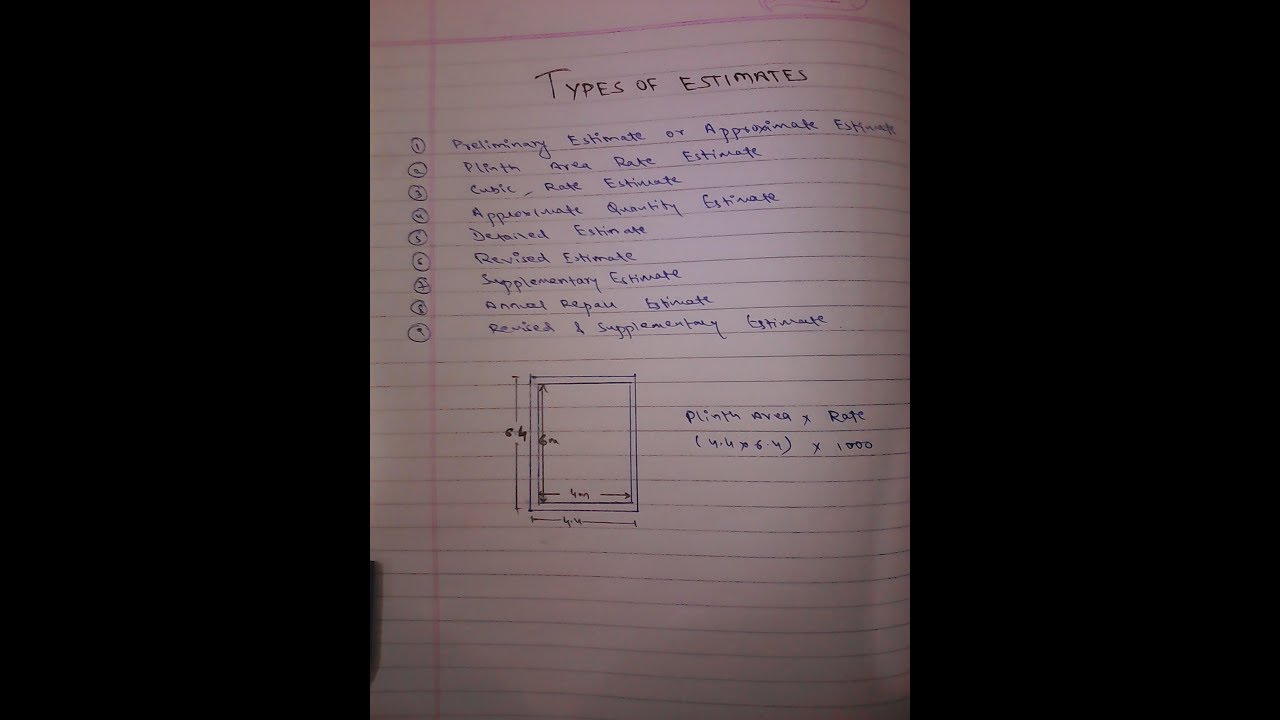 TYPES OF ESTIMATES
① Preliminary Estimate or Approximate Estimate
② Plinth Area Rate Estimate
③ Cubic Rate Estimate
④ Approximate Quantity Estimate
⑤ Detailed Estimate
⑥ Revised Estimate
⑦ Supplementary Estimate
⑧ Annual Repair Estimate
⑨ Revised & Supplementary Estimate
Plinth Area x Rate
6.4 6m (4.4 x 6.4) x 1000
4m
4.4